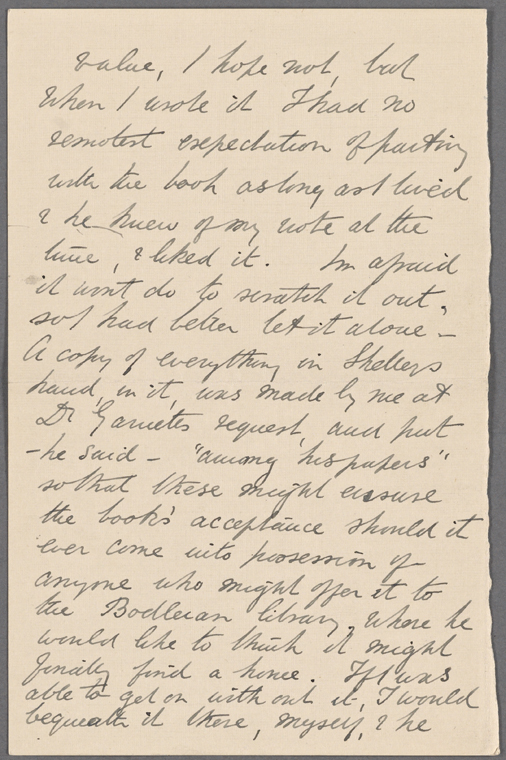 value, I hope not, but
when I wrote it I had no
remotest expectation of parting
with the book as long as I lived
& he knew of my note at the
time, & liked it. Im afraid
it wont do to scratch it out,
so I had better let it alone –
A copy of everything in Shelleys
hand, in it, was made by me at
Dr Garnetts request, and put
– he said – "among his papers"
so that these might ensure
the book's acceptance should it
ever come into possession of
anyone who might offer it to
the Bodleian library, where he
would like to think it might
finally find a home. If I was
able to get on without it, I would
bequeath it there, myself, & he